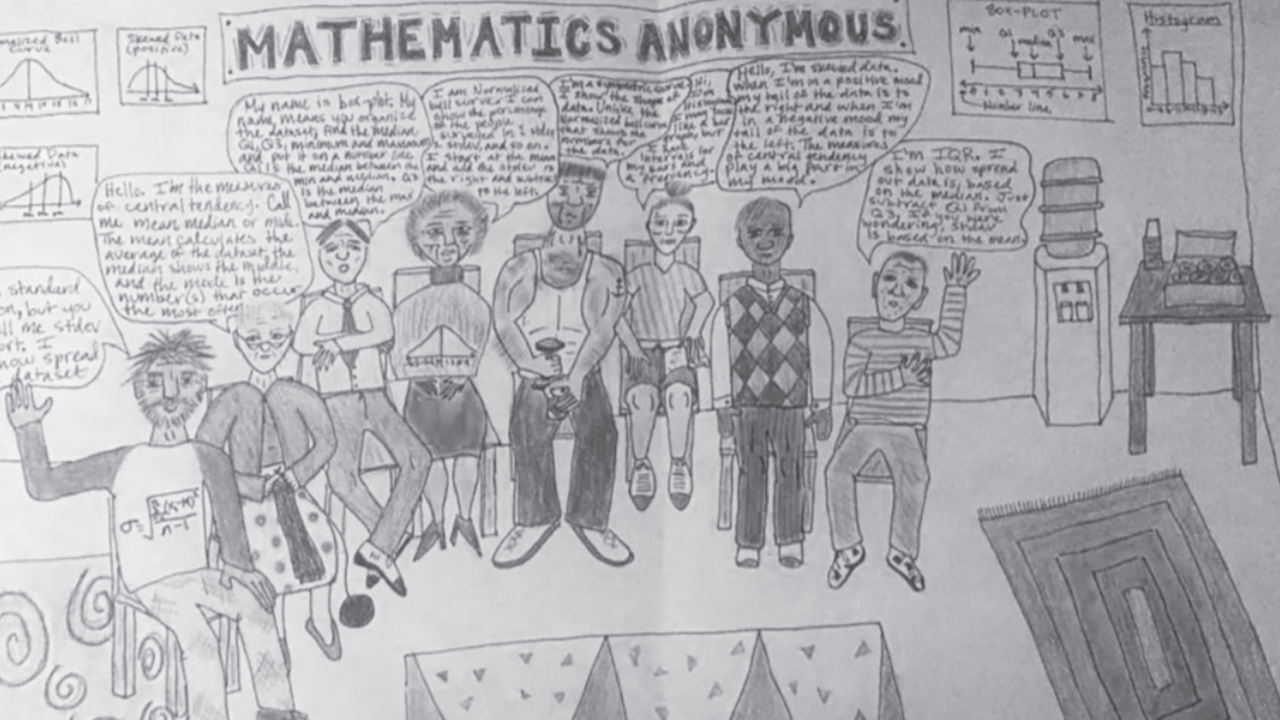 MATHEMATICS ANONYMOUS
Bell
Curve
Skewed Data
(positive)
Skewed Data
(negative)
BOX-PLOT
min Q1 median Q3 max
Number line
Histogram
standard
on, but you
me stdev
ort. I
how spread
dataset
Hello. I'm the measures
of central tendency. Call
me mean median or mode.
The mean calculates the
average of the dataset, the
median shows the middle,
and the mode is the
number(s) that occur
the most often.
My name is box-plot. My
name means you organize
the dataset, find the median,
Q1, Q3, minimum and maximum
and put it on a number line.
Q1 is the median between the
min and median. Q3
is the median
between the max
and median.
I am Normalized
bell curve. I can
show the percentage
of the people
surveyed in 1 stdev
2 stdev, and so on.
I start at the mean
and add the stdev to
the right and subtract
to the left.
I'm a symmetric curve.
I show the shape of
data. Unlike the
Normalized bell curve
that shows the
numbers for
the data.
Hi,
I'm
Histogram
like a bar
graph, but
I have
intervals for
my bars and
a frequency.
Hello, I'm skewed data.
When I'm in a positive mood
my tail of the data is to
the right and when I'm
in a negative mood my
tail of the data is to
the left. The measures
of central tendency
play a big part in
my mood.
I'm IQR. I
show how spread
out data is, based
on the median. Just
subtract Q1 from
Q3. If you were
wondering, stdev
is based on the mean.
n-1